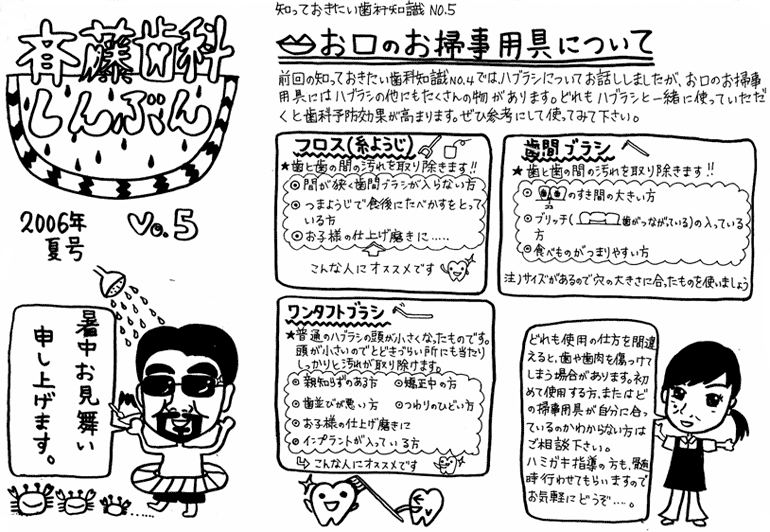 斉藤歯科
しんぶん
2006年
夏号
Vo.5
暑中お見舞い
申し上げます。
知っておきたい歯科知識 NO.5
お口のお掃事用具について
前回の知っておきたい歯科知識NO.4ではハブラシについてお話ししましたが、お口のお掃事
用具にはハブラシの他にもたくさんの物があります。どれもハブラシと一緒に使っていただ
くと歯科予防効果が高まります。ぜひ参考にして使ってみて下さい。
フロス(糸ようじ)
★歯と歯の間の汚れを取り除きます!!
◎間が狭く歯間ブラシが入らない方
◎つまようじで食後にたべかすをとって
いる方
◎お子様の仕上げ磨きに.....
こんな人にオススメです
歯間ブラシ
★歯と歯の間の汚れを取り除きます!!
◎のすき間の大きい方
◎ブリッヂ(歯がつながっている)の入っている
方
◎食べものがつまりやすい方
注)サイズがあるので穴の大きさに合ったものを使いましょう
ワンタフトブラシ
★普通のハブラシの頭が小さくなったものです。
頭が小さいのでとどきづらい所にも当たり
しっかりと汚れが取り除けます。
◎親知らずのある方 ◎矯正中の方
◎歯並びが悪い方 ◎つわりのひどい方
◎お子様の仕上げ磨きに
◎インプラントが入っている方
こんな人にオススメです
どれも使用の仕方を間違
えると、歯や歯肉を傷つけて
しまう場合があります。初
めて使用する方、またはど
の掃事用具が自分に合っ
ているのかわからない方は
ご相談下さい。
ハミガキ指導の方も、随
時行わせてもらいますので
お気軽にどうぞ....。